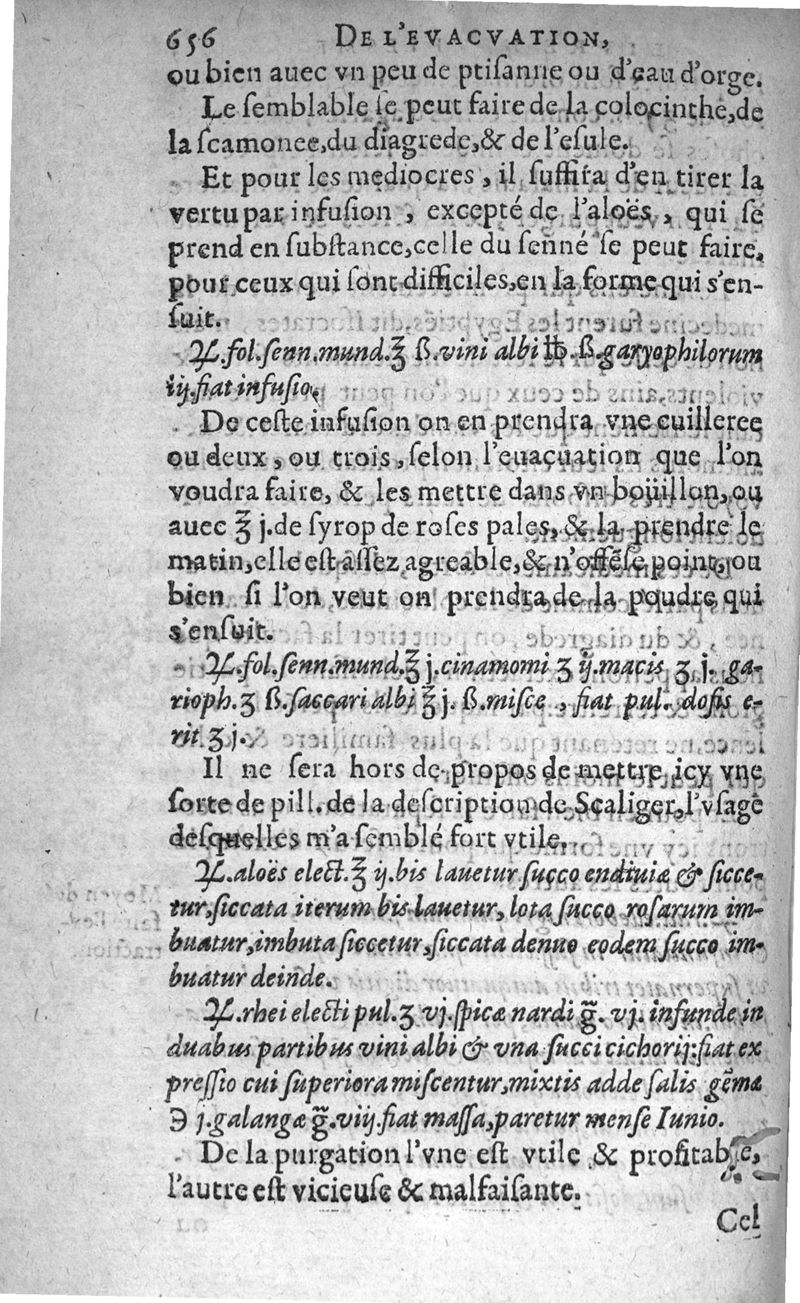 656 DE L'EVACVATION,
ou bien auec vn peu de ptisanne ou d'eau d'orge.
Le semblable se peut faire de la colocinthe, de
la scamonee, du diagrede, & de l'esule.
Et pour les mediocres, il suffira d'en tirer la
vertu par infusion, excepté de l'aloës, qui se
prend en substance, celle du senné se peut faire,
pour ceux qui sont difficiles, en la forme qui s'en-
suit.
♃. fol. senn. mund. ℥ ß. vini albi ℔. ß. garyophilorum
iij. fiat infusio.
De ceste infusion on en prendra vne cuilleree
ou deux, ou trois, selon l'euacuation que l'on
voudra faire, & les mettre dans vn boüillon, ou
auec ℥ j. de syrop de roses pales, & la prendre le
matin, elle est assez agreable, & n'offēse point, ou
bien si l'on veut on prendra de la poudre qui
s'ensuit.
♃. fol. senn. mund. ℥ j. cinamomi ʒ ij. macis ʒ. j. ga-
rioph. ʒ ß. saccari albi ℥ j. ß. misce, fiat pul. dosis e-
rit ʒ j.
Il ne sera hors de propos de mettre icy vne
sorte de pill. de la description de Scaliger, l'vsage
desquelles m'a semblé fort vtile.
♃. aloës elect. ℥ ij. bis lauetur succo endiuiæ & sicce-
tur, siccata iterum bis lauetur, lota succo rosarum im-
buatur, imbuta siccetur, siccata denuo eodem succo im-
buatur deinde.
♃. rhei electi pul. ʒ vj. spicæ nardi g̃. vj. infunde in
duabus partibus vini albi & vna succi cichorij: fiat ex
pressio cui superiora miscentur, mixtis adde salis gēmæ
℈ j. galangæ g̃. viij. fiat massa, paretur mense Iunio.
De la purgation l'vne est vtile & profitable,
l'autre est vicieuse & malfaisante.
Cel